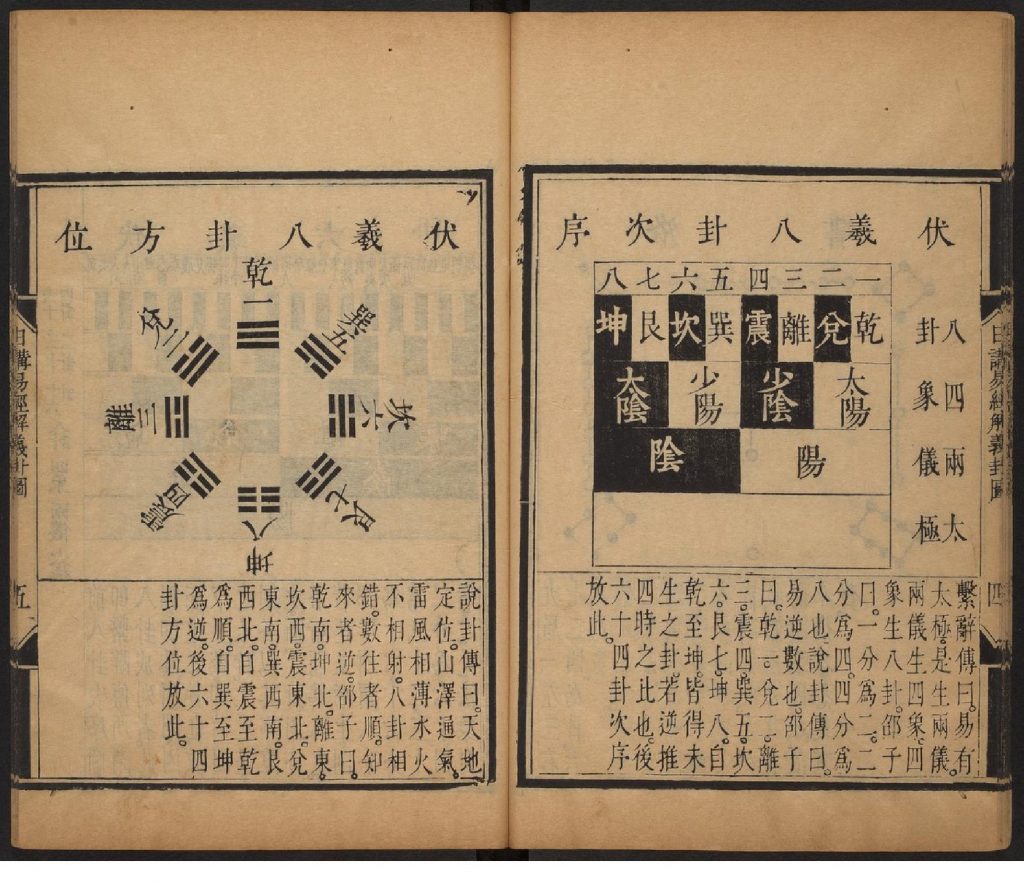 日講易經解義卦圖
四
伏羲八卦次序
一二三四五六七八
八卦
乾兌離震巽坎艮坤
四象
太陽 少陰 少陽 太陰
兩儀
陽 陰
太極
繫辭傳曰。易有
太極。是生兩儀。
兩儀生四象。四
象生八卦。邵子
曰。一分爲二。二
分爲四。四分爲
八也。說卦傳曰。
易逆數也。邵子
曰。乾一。兌二。離
三。震四。巽五。坎
六。艮七。坤八。自
乾至坤。皆得未
生之卦。若逆推
四時之比也。後
六十四卦次序
放此。
伏羲八卦方位
乾一
兌二
離三
震四
巽五
坎六
艮七
坤八
說卦傳曰。天地
定位。山澤通氣。
雷風相薄。水火
不相射。八卦相
錯。數往者順。知
來者逆。邵子曰。
乾南。坤北。離東。
坎西。震東北。兌
東南。巽西南。艮
西北。自震至乾
爲順。自巽至坤
爲逆。後六十四
卦方位放此。
日講易經解義卦圖
五